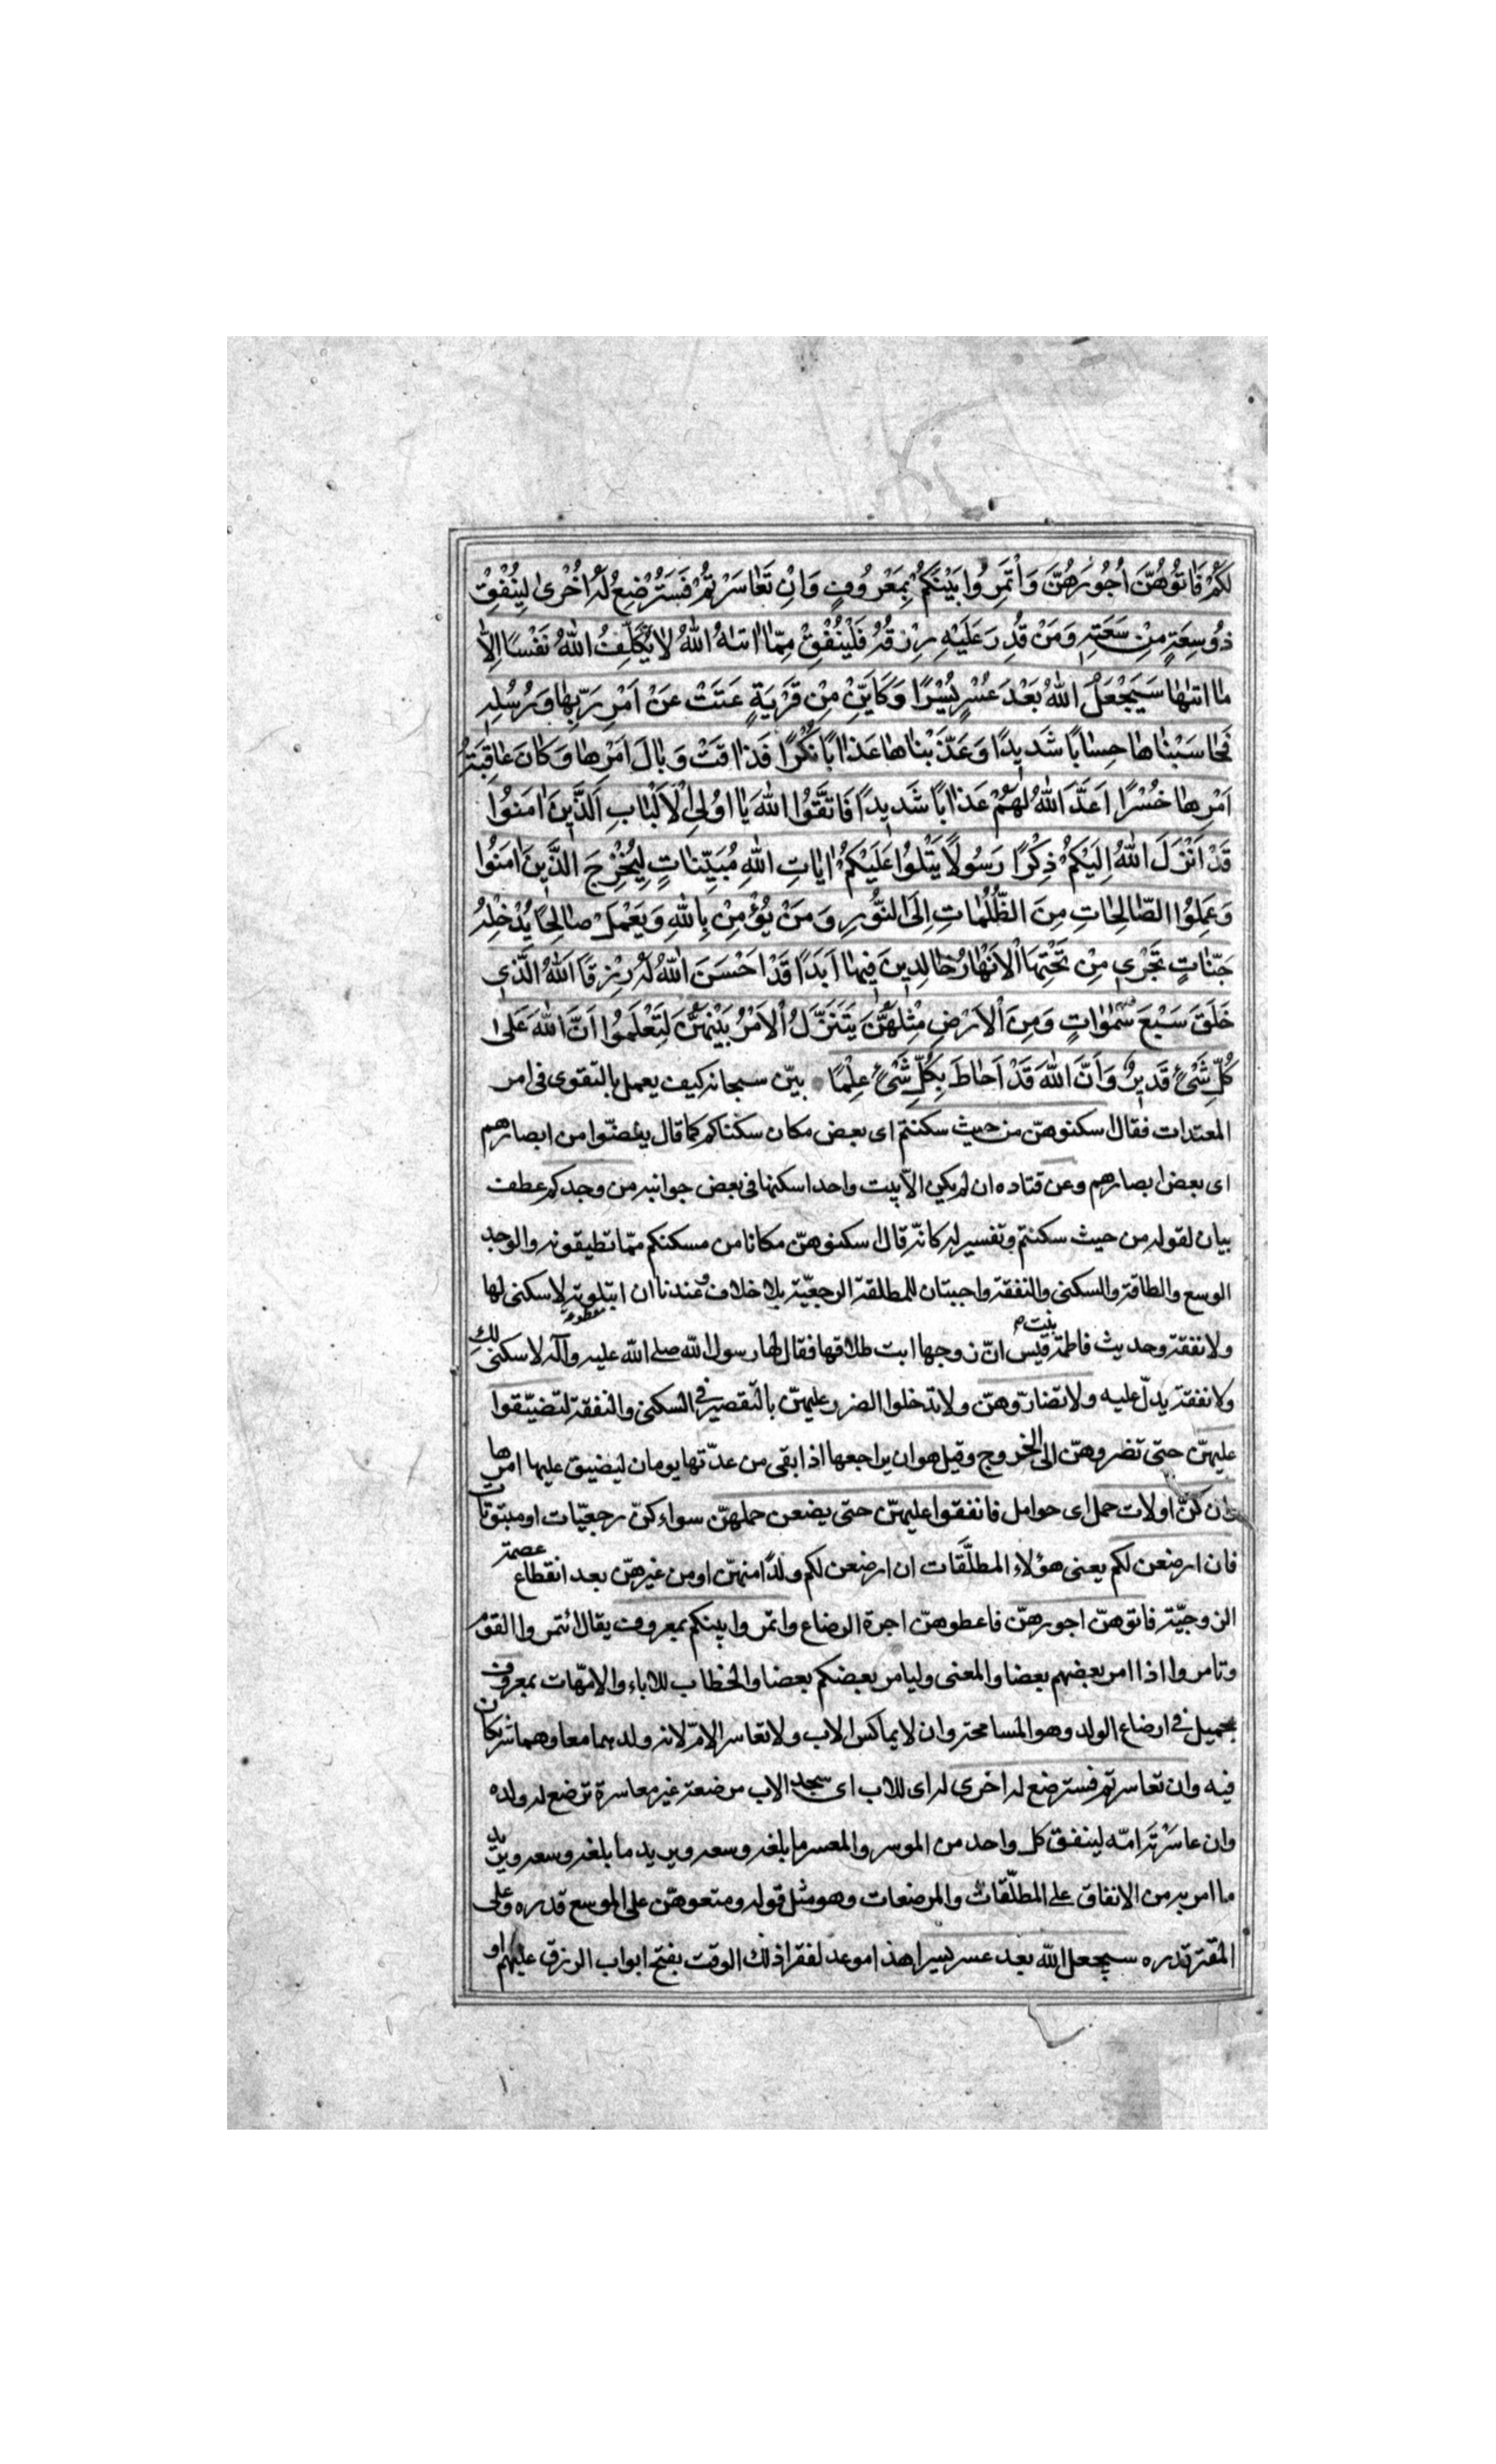 لَكُمْ فَاٰتُوهُنَّ اُجُورَهُنَّ وَأْتَمِرُوا بَيْنَكُمْ بِمَعْرُوفٍ وَاِنْ تَعٰاسَرْتُمْ فَسَتُرْضِعُ لَهُ اُخْرىٰ لِيُنْفِقْ
ذُو سَعَةٍ مِنْ سَعَتِهِ وَمَنْ قُدِرَ عَلَيْهِ رِزْقُهُ فَلْيُنْفِقْ مِمّٰا اٰتٰاهُ اللهُ لٰا يُكَلِّفُ اللهُ نَفْسًا اِلّٰا
مٰا اٰتٰهٰا سَيَجْعَلُ اللهُ بَعْدَ عُسْرٍ يُسْرًا وَكَاَيِّنْ مِنْ قَرْيَةٍ عَتَتْ عَنْ اَمْرِ رَبِّهٰا وَرُسُلِهِ
فَحٰاسَبْنٰاهٰا حِسٰابًا شَدِيدًا وَعَذَّبْنٰاهٰا عَذٰابًا نُكْرًا فَذٰاقَتْ وَبٰالَ اَمْرِهٰا وَكٰانَ عٰاقِبَةُ
اَمْرِهٰا خُسْرًا اَعَدَّ اللهُ لَهُمْ عَذٰابًا شَدِيدًا فَاتَّقُوا اللهَ يٰا اُولِي الْاَلْبٰابِ اَلَّذِينَ اٰمَنُوا
قَدْ اَنْزَلَ اللهُ اِلَيْكُمْ ذِكْرًا رَسُولًا يَتْلُوا عَلَيْكُمْ اٰيٰاتِ اللهِ مُبَيِّنٰاتٍ لِيُخْرِجَ الَّذِينَ اٰمَنُوا
وَعَمِلُوا الصّٰالِحٰاتِ مِنَ الظُّلُمٰاتِ اِلَى النُّورِ وَمَنْ يُؤْمِنْ بِاللهِ وَيَعْمَلْ صٰالِحًا يُدْخِلْهُ
جَنّٰاتٍ تَجْرِي مِنْ تَحْتِهَا الْاَنْهٰارُ خٰالِدِينَ فِيهٰا اَبَدًا قَدْ اَحْسَنَ اللهُ لَهُ رِزْقًا اَللهُ الَّذِي
خَلَقَ سَبْعَ سَمٰوٰاتٍ وَمِنَ الْاَرْضِ مِثْلَهُنَّ يَتَنَزَّلُ الْاَمْرُ بَيْنَهُنَّ لِتَعْلَمُوا اَنَّ اللهَ عَلىٰ
كُلِّ شَيْءٍ قَدِيرٌ وَاَنَّ اللهَ قَدْ اَحٰاطَ بِكُلِّ شَيْءٍ عِلْمًا بيّن سبحانه كيف يعمل بالتقوى فى امر
المعتدات فقال اسكنوهنّ من حيث سكنتم اى بعض مكان سكناكم كما قال يغضّوا من ابصارهم
اى بعض ابصارهم وعن قتاده ان لم يكن الاّ بيت واحد اسكنها فى بعض جوانبه من وجدكم عطف
بيان لقوله من حيث سكنتم وتفسير له كانّه قال اسكنوهنّ مكانا من مسكنكم ممّا تطيقونه والوجد
الوسع والطاقة والسكنى والنفقة واجبتان للمطلقة الرجعيّة بلا خلاف وعندنا ان المبتوتة لا سكنى لها
ولا نفقة وحديث فاطمة بنت قيس انّ زوجها ابت طلاقها فقال لها رسول الله صلى الله عليه وآله لا سكنى لك
ولا نفقة يدلّ عليه ولا تضارّوهنّ ولا تدخلوا الضرر عليهنّ بالتقصير فى السكنى والنفقة لتضيّقوا
عليهنّ حتى تضروهنّ الى الخروج وقيل هو ان يراجعها اذا بقى من عدّتها يومان ليضيق عليها امرها
وان كنّ اولات حمل اى حوامل فانفقوا عليهنّ حتى يضعن حملهنّ سواء كنّ رجعيّات او مبتوتات
فان ارضعن لكم يعنى هؤلاء المطلّقات ان ارضعن لكم ولدًا منهنّ او من غيرهنّ بعد انقطاع عصمة
الزوجيّة فاتوهنّ اجورهنّ فاعطوهنّ اجرة الرضاع واتمروا بينكم بمعروف يقال ائتمروا القوم
وتامروا اذا امر بعضهم بعضا والمعنى وليامر بعضكم بعضا والخطاب للاباء والامّهات بمعروف
بجميل فى ارضاع الولد وهو المسامحة وان لا يماكس الاب ولا تعاسر الامّ لانه ولدهما معا وهما شريكان
فيه وان تعاسرتم فسترضع له اخرى له اى للاب اى سيجد الاب مرضعة غير معاسرة ترضع له ولده
وان عاسَرْتَه امّه لينفق كل واحد من الموسر والمعسر ما بلغه وسعه ويريد ما بلغه وسعه ويريد
ما امر به من الانفاق على المطلّقات والمرضعات وهو مثل قوله ومتعوهنّ على الموسع قدره وعلى
المقتر قدره سيجعل الله بعد عسر يسرا هذا موعد لفقراء ذلك الوقت بفتح ابواب الرزق عليهم او